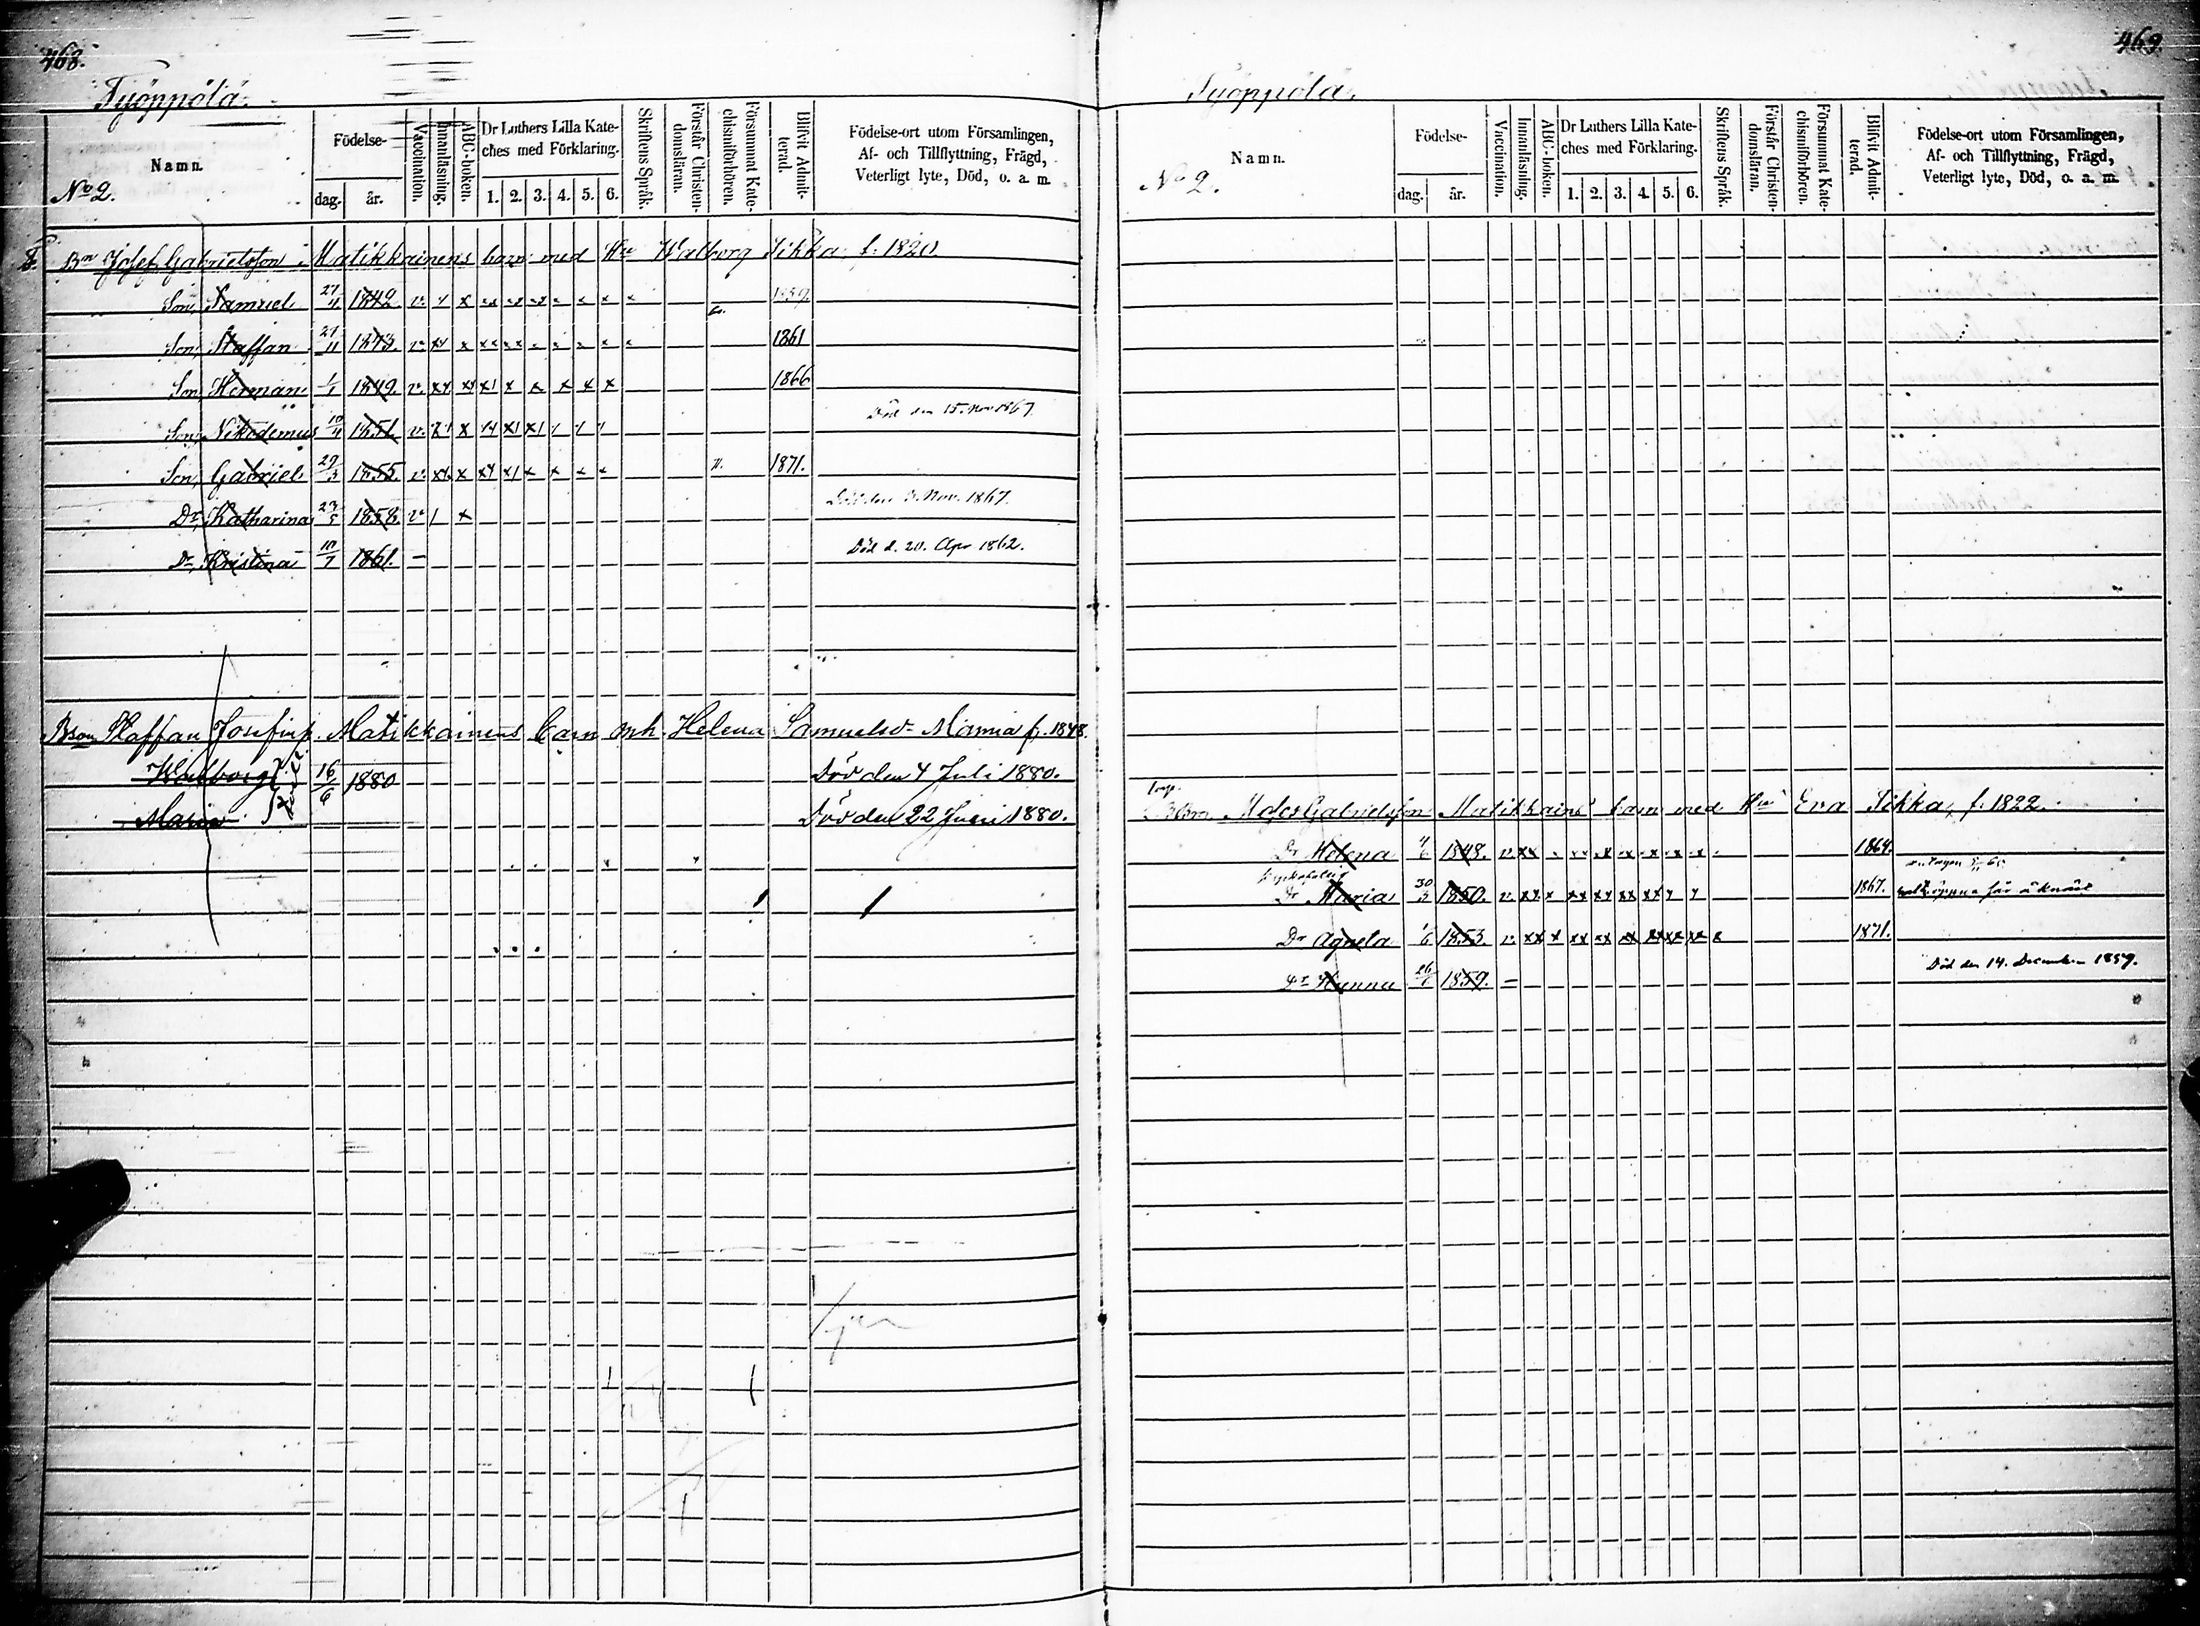 468.
Työppölä.
Namn.
No 2.
Födelse-
dag. år.
Vaccination.
Innanläsning.
ABC-boken.
Dr Luthers Lilla Kate-
ches med Förklaring.
1. 2. 3. 4. 5. 6.
Skriftens Språk.
Förstår Christen-
domsläran.
Försummat Kate-
chismiförhören.
Blifvit Admit-
terad.
Födelse-ort utom Församlingen,
Af- och Tillflyttning, Frägd,
Veterligt lyte, Död, o. a. m.
8. Bn Josef Gabrielsson Matikkainens barn med Hu Walborg Sikka f. 1820.
Son, Samuel 27/11 1842 v. 1859
Son, Staffan 21/11 1843. v. 1861
Son, Herman 1/1 1849. v. 1866
Död den 15. Nov 1867
Son, Nikodemus 10/11 1851. v.
Son, Gabriel 29/3 1855. v. 1871.
Nov. 1867.
Dr, Katharina 23/5 1858 v
Död d. 20. Apr 1862.
Dr, Kristina 10/7 1861. –
Bson Staffan Josefinp. Matikkainens barn mh. Helena Samuelsd. Mamia f. 1848.
Walborg 16/6 1880 Död den 4 Juli 1880.
Maria Död den 22 Juni 1880.
469.
Työppölä.
Namn.
No 2.
Födelse-
dag. år.
Vaccination.
Innanläsning.
ABC-boken.
Dr Luthers Lilla Kate-
ches med Förklaring.
1. 2. 3. 4. 5. 6.
Skriftens Språk.
Förstår Christen-
domsläran.
Försummat Kate-
chismiförhören.
Blifvit Admit-
terad.
Födelse-ort utom Församlingen,
Af- och Tillflyttning, Frägd,
Veterligt lyte, Död, o. a. m.
Gabrielsson Matikkains barn med Hu Eva Sikka, f. 1822.
Dr Helena 4/6 1848. v. 1864.
Dr Maria 30/3 1850. v. 1867.
Dr Agneta 1/6 1853. v. 1871.
Död den 14. December 1859.
Dr Hanna 26/6 1859. –